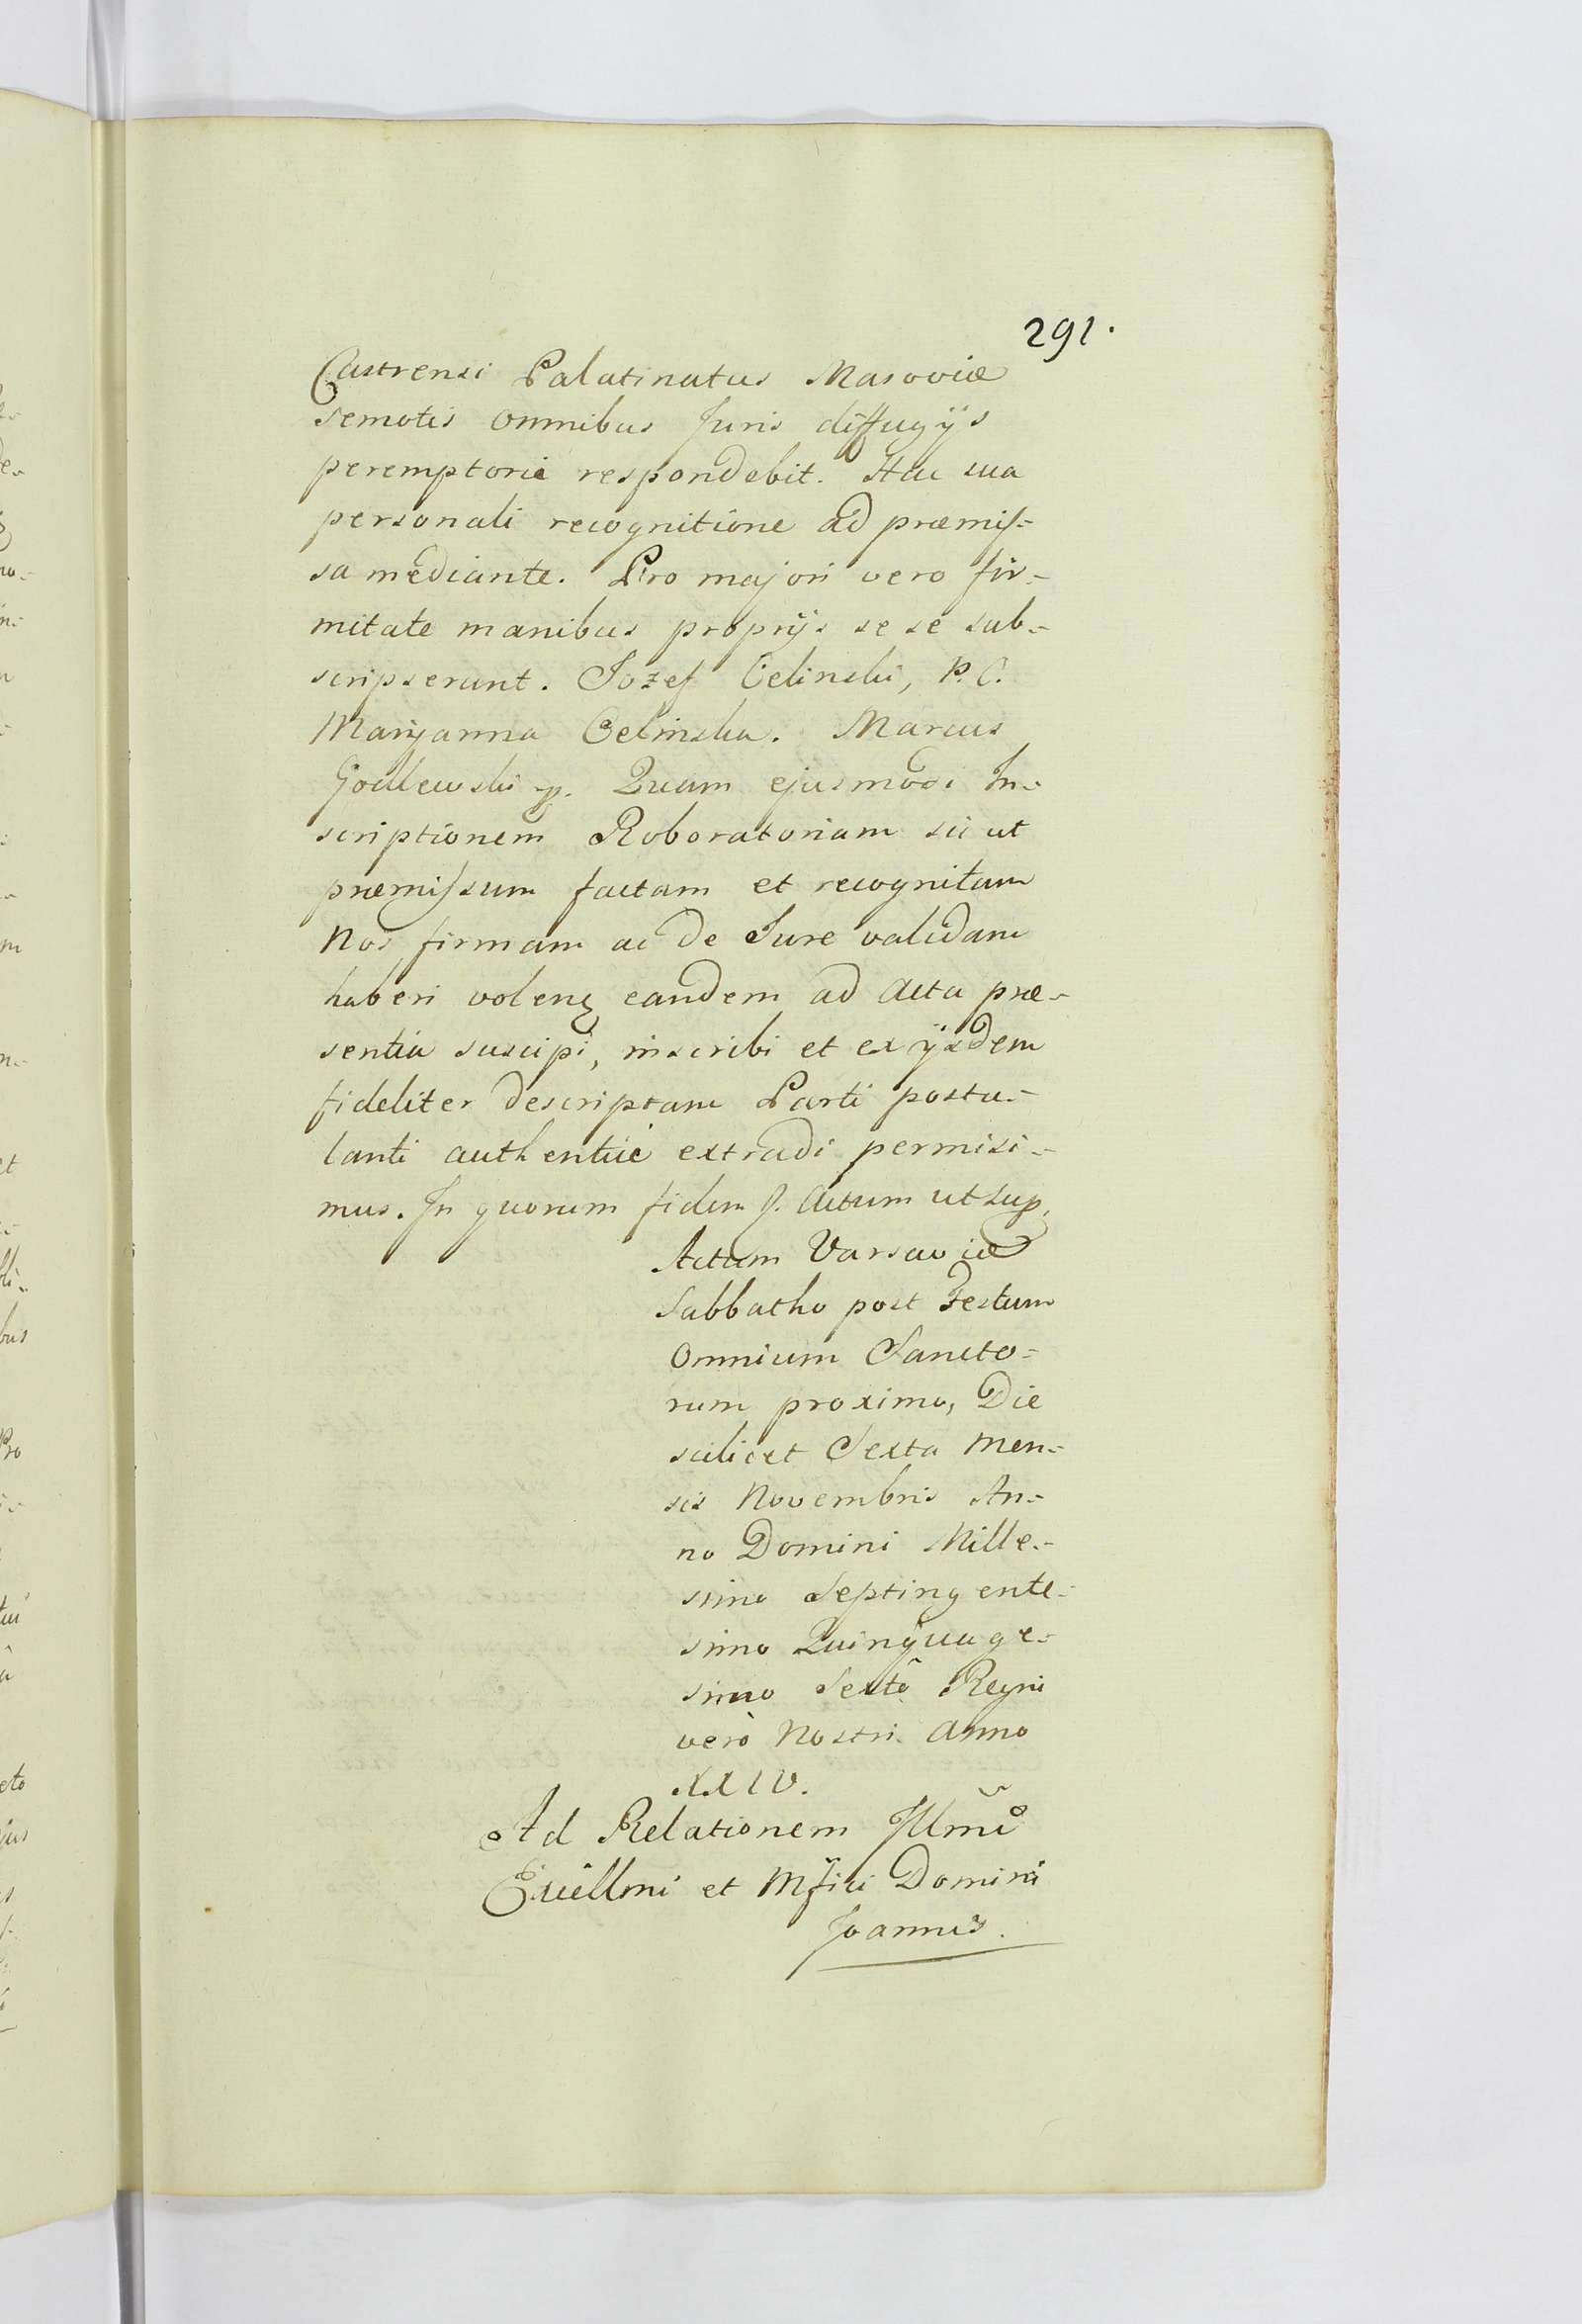 291.
Castrensi Palatinatus Masoviæ
semotis omnibus Juris diffugÿs
peremptorie respondebit. Hac sua
personali recognitione ad præmis-
sa mediante. Pro majori vero fir-
mitate manibus proprÿs se se sub-
scripserunt. Jozef Cielinski, P. C.
Maryanna Celinska. Marcus
Godlewski p. Quam ejusmodi In-
scriptionem Roboratoriam sic ut
præmissum factam et recognitam
Nos firmam ac de Jure validam
haberi volen eandem ad Acta præ-
sentia suscipi, inscribi et ex ÿsdem
fideliter descriptam Parti postu-
lanti authentice extradi permisi-
mus. In quorum fidem p. Actum ut sup.
Actum Varsaviæ
Sabbatho post Festum
Omnium Sancto-
rum proximo, Die
scilicet Sexta Men-
sis Novembris An-
no Domini Mille-
simo Septingente-
simo Quinquage-
simo Sexto Regni
verò Nostri Anno
XXIV.
Ad Relationem Illmi
Excellmi et Mfici Domini
Joannis.